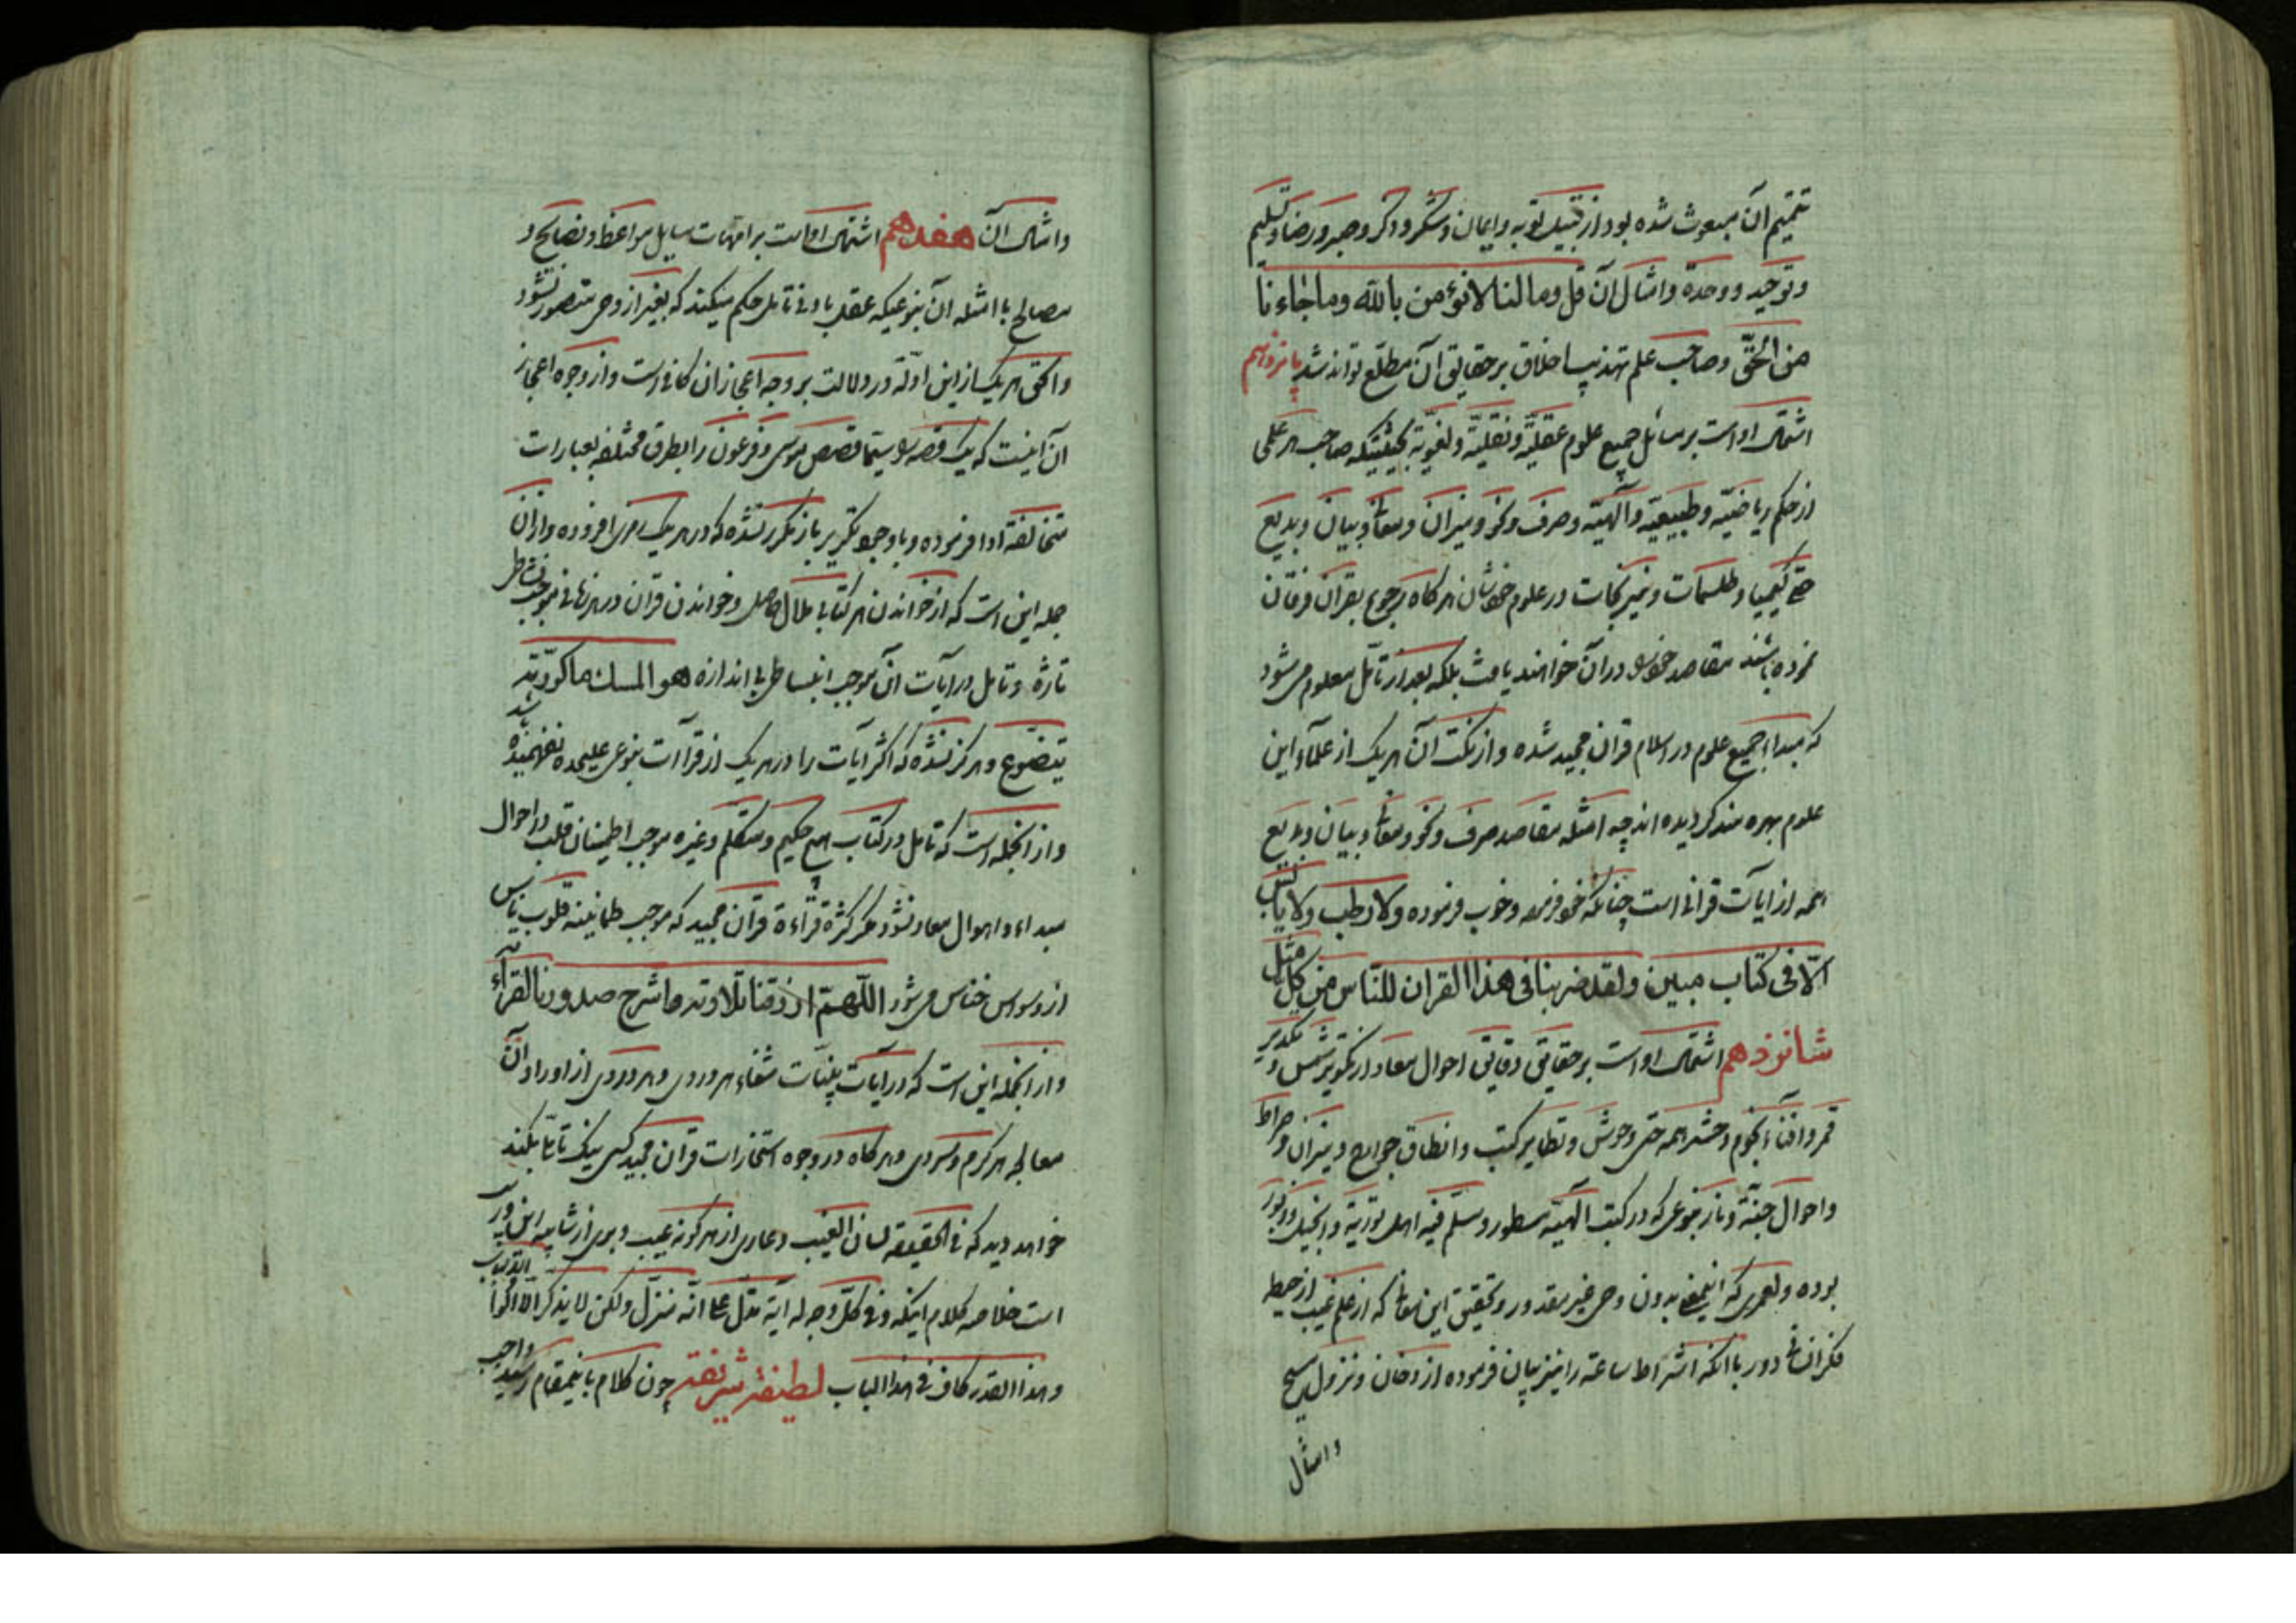 تتمیم آن مبعوث شده بود از قبیل توبه و ایمان و شکر و ذکر و صبر و رضا و تسلیم
و توحید و وحدة و امثال آن قل وما لنا لا نؤمن بالله وما جاءنا
من الحقّ و صاحب علم تهذیب اخلاق بر حقایق آن مطلّع تواند شد پانزدهم
اشتمال او است بر مسائل جمیع علوم عقلیّه و نقلیّه و لغویّه بحیثیتیکه صاحب هر علمی
از حکم ریاضیّه و طبیعیّه و آلهیّه و صرف و نحو و میزان و معانی و بیان و بدیع
حتی کیمیا و طلسمات و نیرنجات در علوم خودشان هر کاه رجوع بقرآن فرقان
نموده باشند مقاصد خود در آن خواهند یافت بلکه بعد از تأمّل معلوم می شود
که مبداء جمیع علوم در اسلام قرآن مجید شده و از نکت آن هر یک از علمآء این
علوم بهره مند کردیده اند چه امثله مقاصد صرف و نحو و معانی و بیان و بدیع
همه از ایات قرآنی است چنانکه خود فرموده و خوب فرموده ولا رطب ولا یابس
الّا فی کتاب مبین ولقد ضربنا فی هذا القران للنّاس من کلّ مثل
شانزدهم اشتمال او است بر حقایق دقایق احوال معاد از تکویر شمس و تکدیر
قمر و افناء نجوم و حشر همه حتی وحوش و تطایر کتب و انطاق جوارح و میزان و صراط
و احوال جنّة و نار بنوعی که در کتب آلهیّه مسطور و مسلّم فیه اهل توریة و انجیل و زبور
بوده و لعمری که اینمعنی بدون وحی غیر مقدور و تحقیق این معانی که از علم غیب از حیطه
فکر انسانی دور با آنکه اشراط ساعة را نیز بیان فرموده از دخان و نزول مسیح
و امثال
و امثال آن هفدهم اشتمال او است بر امّهات مسایل مواعظ و نصایح و
مصالح با امثله آن بنوعیکه عقل بادنی تامل حکم میکند که بغیر از وحی متصور نشود
و الحق هر یک از این ادلّه در دلالت بر وجه اعجاز آن کافی است و از وجوه اعجاز
آن اینست که یک قصه سیّما قصص موسی و فرعون را بطرق مختلفه بعبارات
متخالفة ادا فرموده و با وجود تکریر باز مکرر نشده که در هر یک سرّی افزوده و از آن
جمله این است که از خواندن هر کتابی ملال حاصل و خواندن قرآن در هر زمانی موجب نشاط
تازه و تامل در آیات آن موجب انبساط بی اندازه هو المسک ما کرّرته
یتضوّع و هرکز نشده که اکثر آیات را در هر یک از قراآت بنوعی علیحده نفهمیده شد
و از آنجمله است که تامل در کتاب هیچ حکیم و متکلم و غیره موجب اطمینان قلب در احوال
مبداء و اهوال معاد نشود مکر کثرة قراءة قرآن مجید که موجب طمانینه قلوب ناس
از وسواس خناس می شود اللّهمّ ارزقنا تلاوته و اشرح صدورنا لقرآئته
و از آنجمله این است که در آیات بیّنات شفاء هر دردی و هر وردی از اوراد آن
معالج هر کرم و سردی و هر کاه در وجوه استخارات قرآن مجید کسی نیک تامّل بکند
خواهد دید که فی الحقیقه لسان الغیب و عاری از هر کونه عیب و بری از شایبه این و ریب
است خلاصه کلام اینکه و فی کلّ وجه له آیة تدلّ علی انّه منزل و لکن لا یذکر الّا اولوا الالباب
و هذا القدر کاف فی هذا الباب لطیفة شریفة چون کلام باینمقام رسید واجب